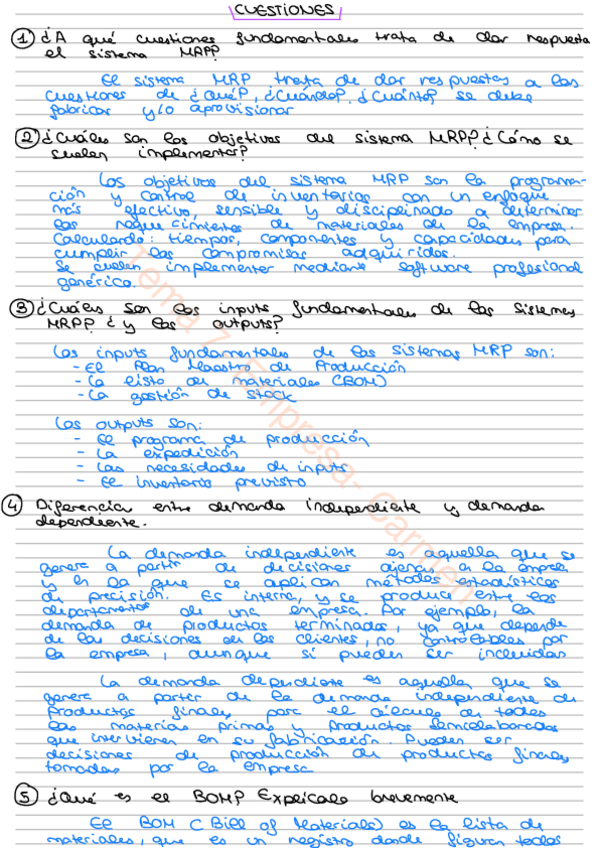 CUESTIONES
1 ¿A qué cuestiones fundamentales trata de dar respuesta
el sistema MRP?
El sistema MRP trata de dar respuestas a las
cuestiones de ¿Qué?, ¿Cuándo?, ¿Cuánto? se debe
fabricar y/o aprovisionar
2 ¿Cuáles son los objetivos del sistema MRP? ¿Cómo se
suelen implementar?
Los objetivos del sistema MRP son la programa-
ción y control de inventarios con un enfoque
más efectivo, sensible y disciplinado a determinar
los requerimientos de materiales de la empresa.
Calculando: tiempos, componentes y capacidades para
cumplir los compromisos adquiridos.
Se suelen implementar mediante software profesional
genérico.
3 ¿Cuáles son los inputs fundamentales de los sistemas
MRP? ¿y los outputs?
Los inputs fundamentales de los sistemas MRP son:
- El Plan Maestro de Producción
- La lista de materiales (BOM)
- La gestión de stock
Los outputs son:
- El programa de producción
- La expedición
- Las necesidades de inputs
- El inventario previsto
4 Diferencias entre demanda independiente y demanda
dependiente.
La demanda independiente es aquella que se
genera a partir de decisiones ajenas a la empresa
y en la que se aplican métodos estadísticos
de precisión. Es interna, y se produce entre los
departamentos de una empresa. Por ejemplo, la
demanda de productos terminados, ya que depende
de las decisiones de los clientes, no controlables por
la empresa, aunque sí pueden ser incluidas
La demanda dependiente es aquella que se
genera a partir de la demanda independiente de
productos finales, para el cálculo de todas
las materias primas y productos semielaborados
que intervienen en su fabricación. Pueden ser
decisiones de producción de productos finales
tomadas por la empresa
5 ¿Qué es el BOM? Explícalo brevemente
El BOM (Bill of Materials) es la lista de
materiales, que es un registro donde figuran todos
Tema 7 Empresa- Carmen